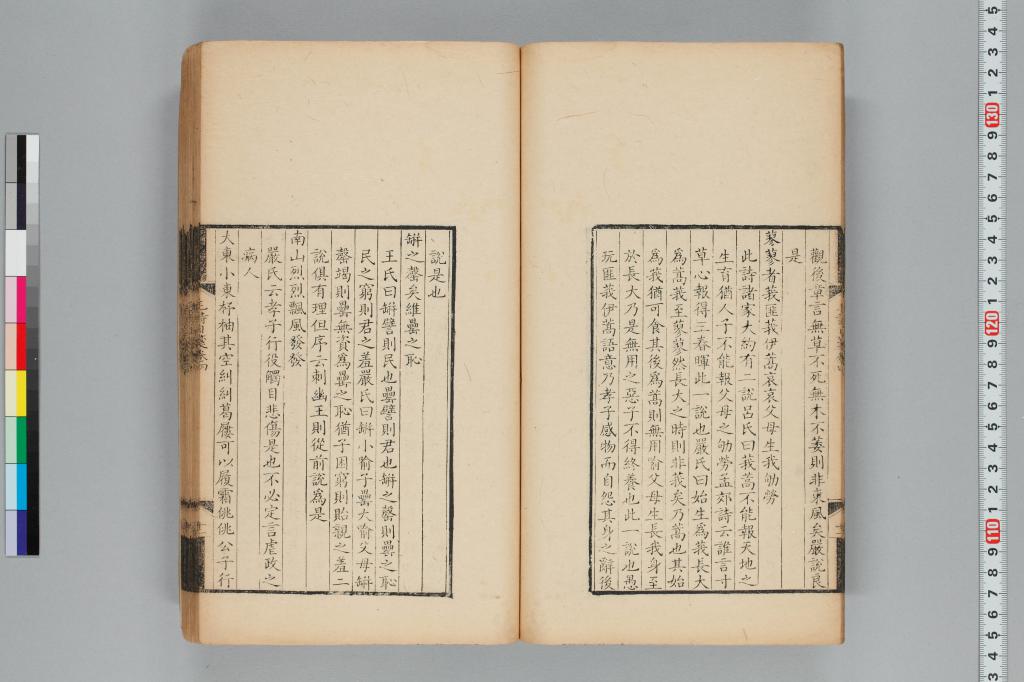 觀後章言無草不死無木不萎則非東風矣嚴說良
是
蓼蓼者莪匪莪伊蒿哀哀父母生我劬勞
此詩諸家大約有二說呂氏曰莪蒿不能報天地之
生育猶人子不能報父母之劬勞孟郊詩云誰言寸
草心報得三春暉此一說也嚴氏曰始生為莪長大
為蒿莪至蓼蓼然長大之時則非莪矣乃蒿也其始
為莪猶可食其後為蒿則無用喻父母生長我身至
於長大乃是無用之惡子不得終養也此一說也愚
玩匪莪伊蒿語意乃孝子感物而自怨其身之辭後
說是也
缾之罄矣維罍之恥
王氏曰缾譬則民也罍譬則君也缾之罄則罍之恥
民之窮則君之羞嚴氏曰缾小喻子罍大喻父母缾
罄竭則罍無資為罍之恥猶子困窮則貽親之羞二
說俱有理但序云刺幽王則從前說為是
南山烈烈飄風發發
嚴氏云孝子行役觸目悲傷是也不必定言虐政之
病人
大東小東杼柚其空糾糾葛屨可以履霜佻佻公子行